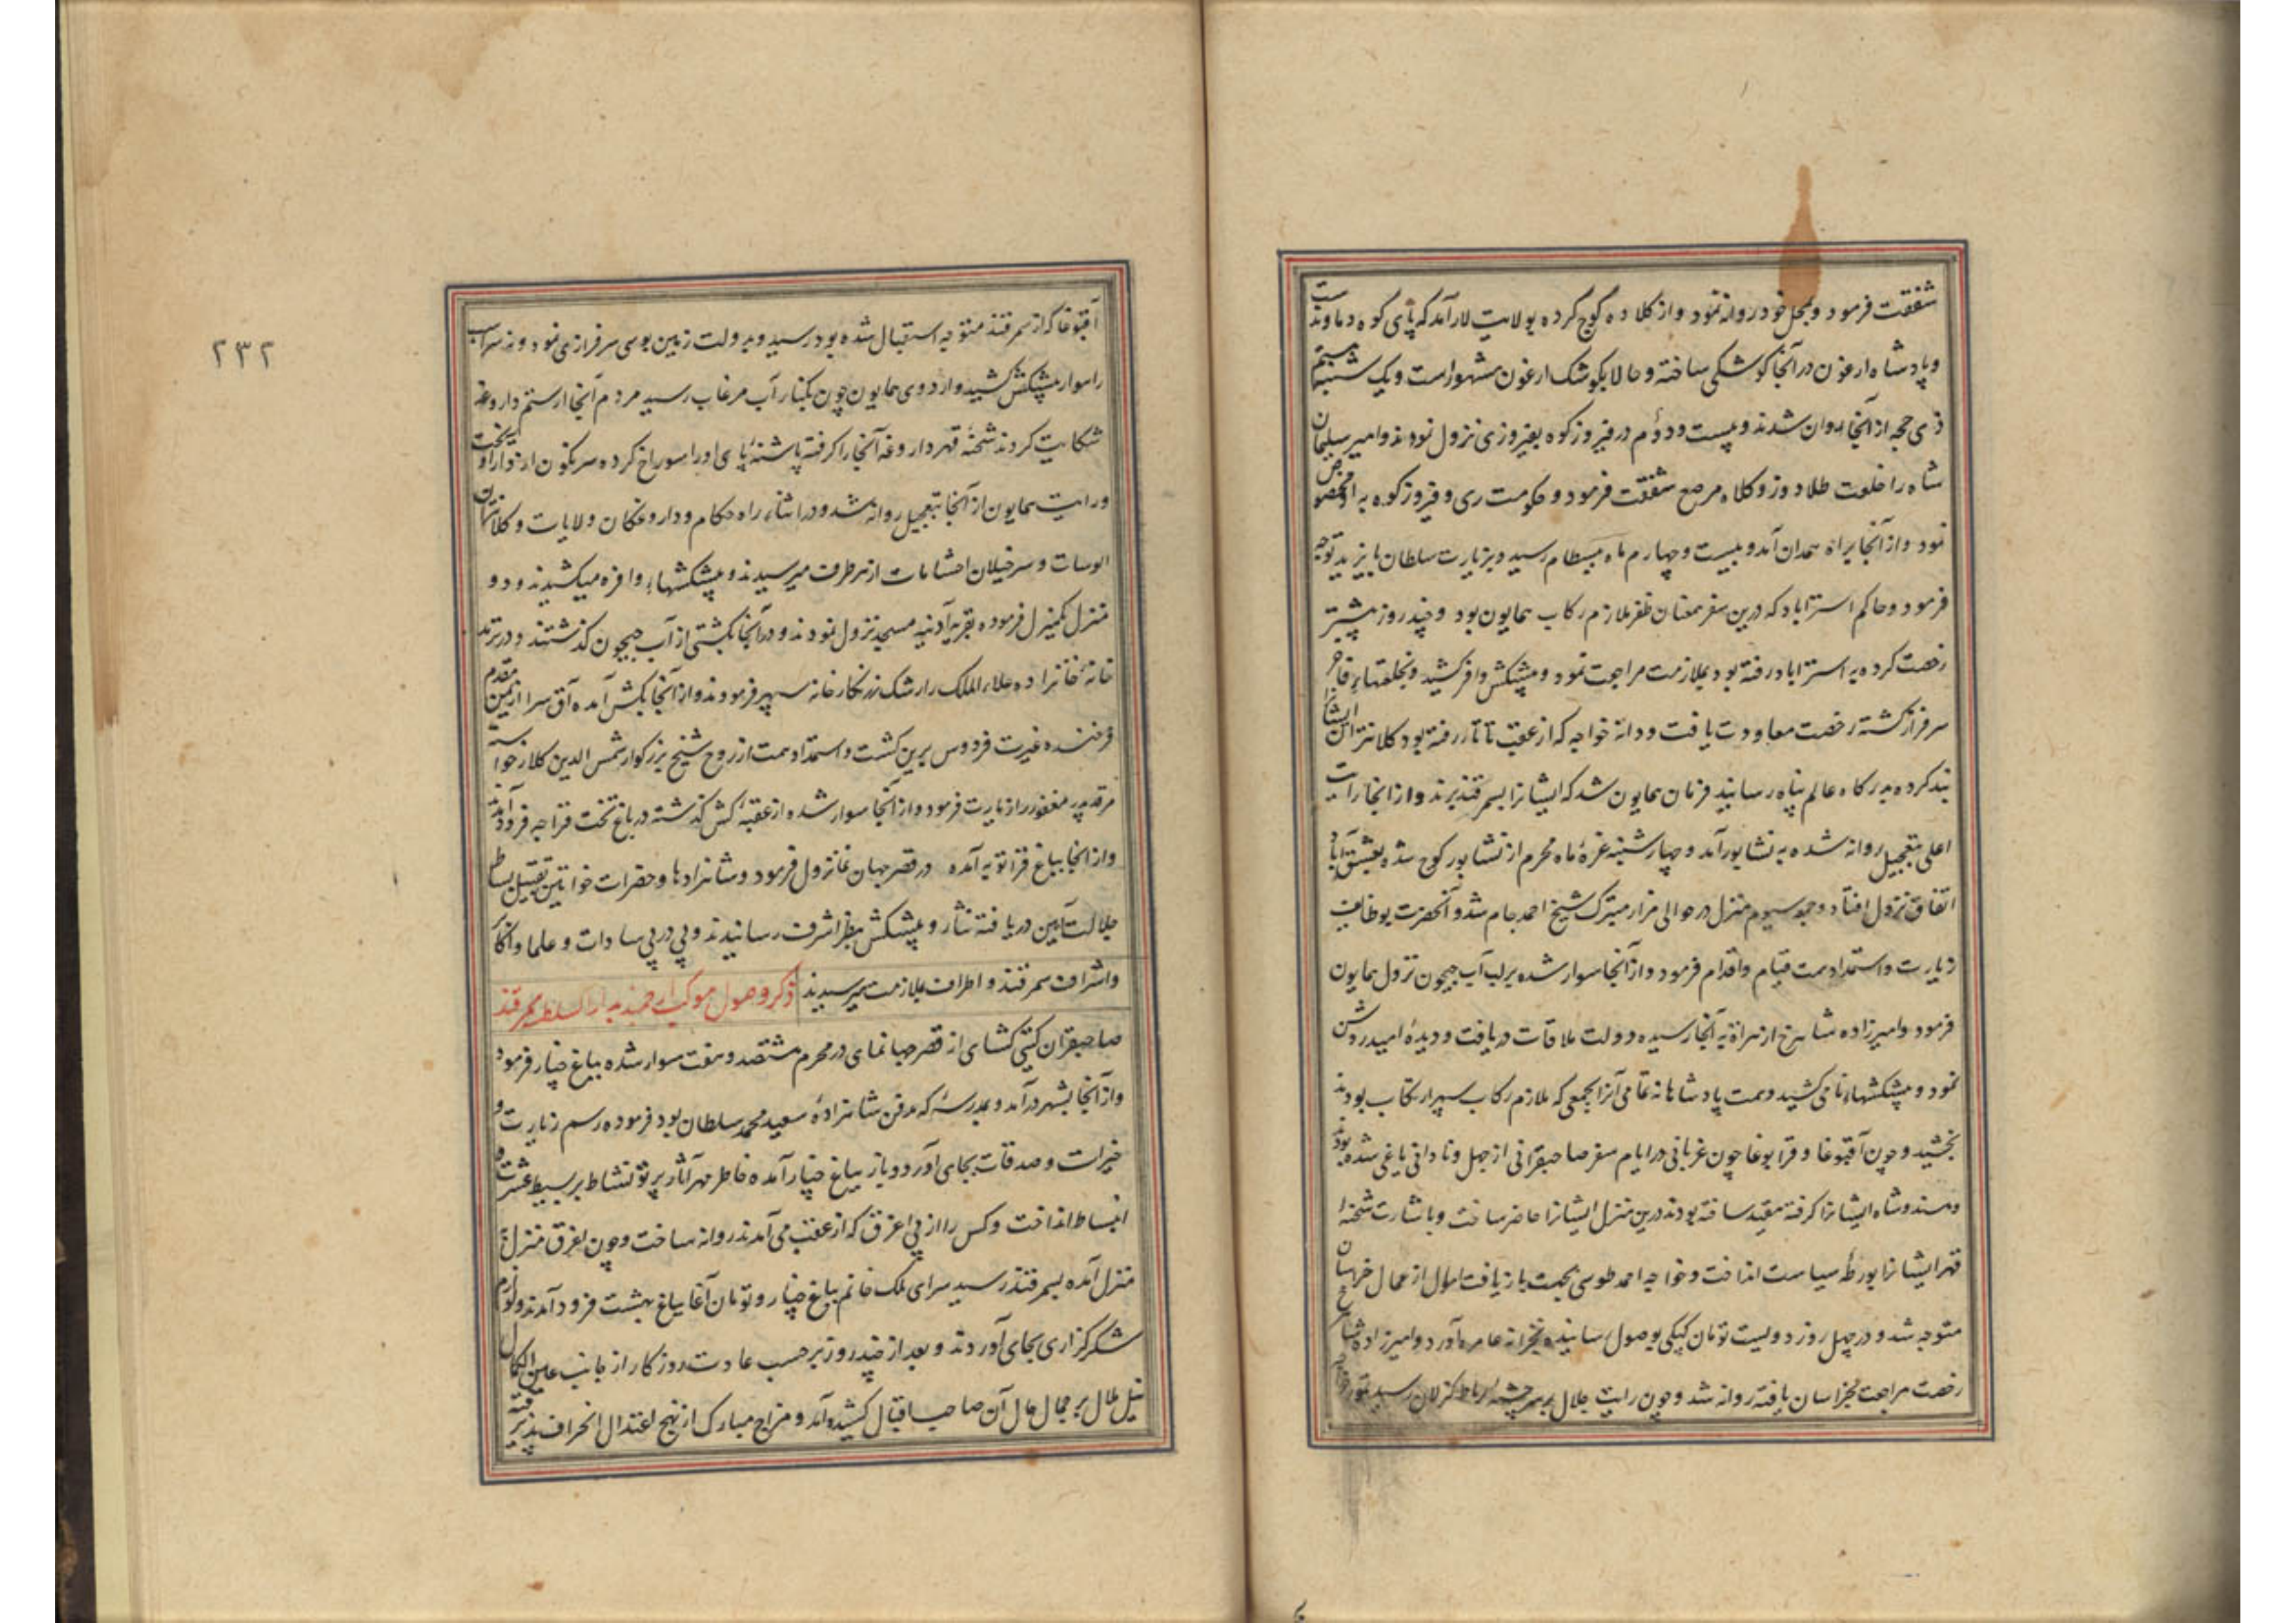 شفقت فرمود و بمحل خود روانه نمود و از کلاده کوچ کرده بولایت لار آمد که پای کوه دماوند است
و پادشاه ارغون در آنجا کوشکی ساخته و حالا بکوشک ارغون مشهور است و یک شنبه بیستم
ذی حجه از آنجا روان شدند و بیست و دوم در فیروزکوه بفیروزی نزول نمودند و امیر سلیمان
شاه را خلعت طلا دوز و کلاه مرصع شفقت فرمود و حکومت ری و فیروزکوه به او مخصوص
نمود و از آنجا براه سمدان آمد و بیست و چهارم ماه ببسطام رسید و بزیارت سلطان بایزید توجه
فرمود و حاکم استراباد که درین سفر بمعنان ظفر ملازم رکاب همایون بود و چند روز پیشتر
رخصت کرده به استراباد رفته بود بملازمت مراجعت نمود و پیشکش وافر کشید و بخلعتهاء فاخر
سرفراز کشته رخصت معاودت یافت و دانه خواجه که از عقب تاتار رفته بود کلانتران ایشانرا
بند کرده بدرکاه عالم پناه رسانید فرمان همایون شد که ایشانرا بسمرقند برند و از آنجا رایت
اعلی بتعجیل روانه شده به نشابور آمد و چهارشنبه غره ماه محرم از نشابور کوچ شده بعشق آباد
اتفاق نزول افتاد و جمعه سیوم منزل در حوالی مزار متبرک شیخ احمد جام شد و آنحضرت بوظایف
زیارت و استمداد همت قیام و اقدام فرمود و از آنجا سوار شده بر لب آب جیحون نزول همایون
فرمود و امیرزاده شاهرخ از هراة به آنجا رسیده دولت ملاقات دریافت و دیدهٔ امید روشن
نمود و پیشکشهاء نامی کشید و همت پادشاهانه تمامی آنرا بجمعی که ملازم رکاب سپهر ارتکاب بودند
بخشید و چون آقبوغا و قرابوغا چون غربانی در ایام سفر صاحبقرانی از جهل و نادانی یاغی شده بودند
و هندوشاه ایشانرا کرفته مقید ساخته بودند درین منزل ایشانرا حاضر ساخت و باشارت شحنه
قهر ایشانرا بورطهٔ سیاست انداخت و خواجه احمد طوسی بجهت بازیافت اموال از عمال خراسان
متوجه شد و در چهل روز دویست تومان کپکی بوصول رسانیده بخزانه عامره آورد و امیرزاده شاهرخ
رخصت مراجعت بخراسان یافته روانه شد و چون رایت جلال بر سر چشمهٔ رباط کزلان رسید تیمور خواجه
۲۳۲
آقبوغا که از سمرقند متوجه استقبال شده بود رسید و بدولت زمین بوسی سرفرازی نمود و سر اسب
راهوار پیشکش کشید و اردوی همایون چون بکنار آب مرغاب رسید مردم آنجا از ستم داروغه
شکایت کردند شحنهٔ قهر داروغه آنجا را کرفته پاشنهٔ پای او را سوراخ کرده سرنکون از دار آویخت
و رایت همایون از آنجا بتعجیل روانه شد و در اثناء راه حکام و داروغکان ولایات و کلانتران
الوسات و سرخیلان احشامات از هر طرف میرسیدند و پیشکشهاء وافره میکشیدند و دو
منزل یکمنزل فرموده بقریه آدینه مسجد نزول نمودند و در آنجا بکشتی از آب جیحون کذشتند و در ترمد
خانه خانزاده علاء الملک را رشک زرنکار خانه سپهر فرمودند و از آنجا بکش آمده آق سرا از یمن مقدم
فرخنده غیرت فردوس برین کشت و استمداد همت از روح شیخ بزرکوار شمس الدین کلار خواست
مرقد پدر مغفور را زیارت فرمود و از آنجا سوار شده از عقبهٔ کش کذشته در باغ تخت قراجه فرود آمدند
و از آنجا بباغ قراتوبه آمده در قصر جهان نما نزول فرمود و شاهزادها و حضرات خواتین تقبیل بساط
جلالت آیین دریافته نثار و پیشکش بنظر اشرف رسانیدند و پی در پی سادات و علما و اکابر
و اشراف سمرقند و اطراف بملازمت میرسیدند ذکر وصول موکب ارجمند به دار السلطنه سمرقند
صاحبقران کیتی کشای از قصر جهانمای در محرم هشتصد و هفت سوار شده بباغ چنار فرمود
و از آنجا بشهر درآمد و بمدرسه که مدفن شاهزادهٔ سعید محمد سلطان بود فرموده رسم زیارت و
خیرات و صدقات بجای آورد و باز بباغ چنار آمده خاطر مهر آثار پرتو نشاط بر بسیط عشرت و
انبساط انداخت و کس را از پی اغرق که از عقب می آمدند روانه ساخت و چون اغرق منزل
منزل آمده بسمرقند رسید سرای ملک خانم بباغ چنار و تومان آغا بباغ بهشت فرود آمدند و لوازم
شکرکزاری بجای آوردند و بعد از چند روز بر حسب عادت روزکار از جانب عین الکمال
نیل ملال بر جمال حال آن صاحب اقبال کشیده آمد و مزاج مبارک از نهج اعتدال انحراف پذیرفته